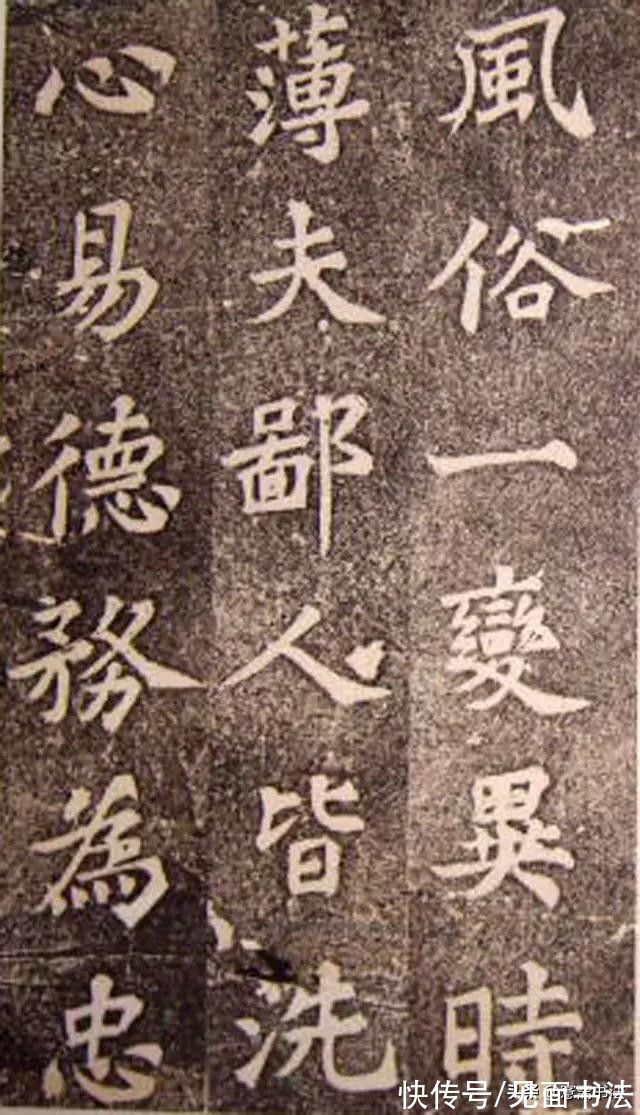 風俗一變異時
薄夫鄙人皆洗
心易德務為忠
快传号/见面书法